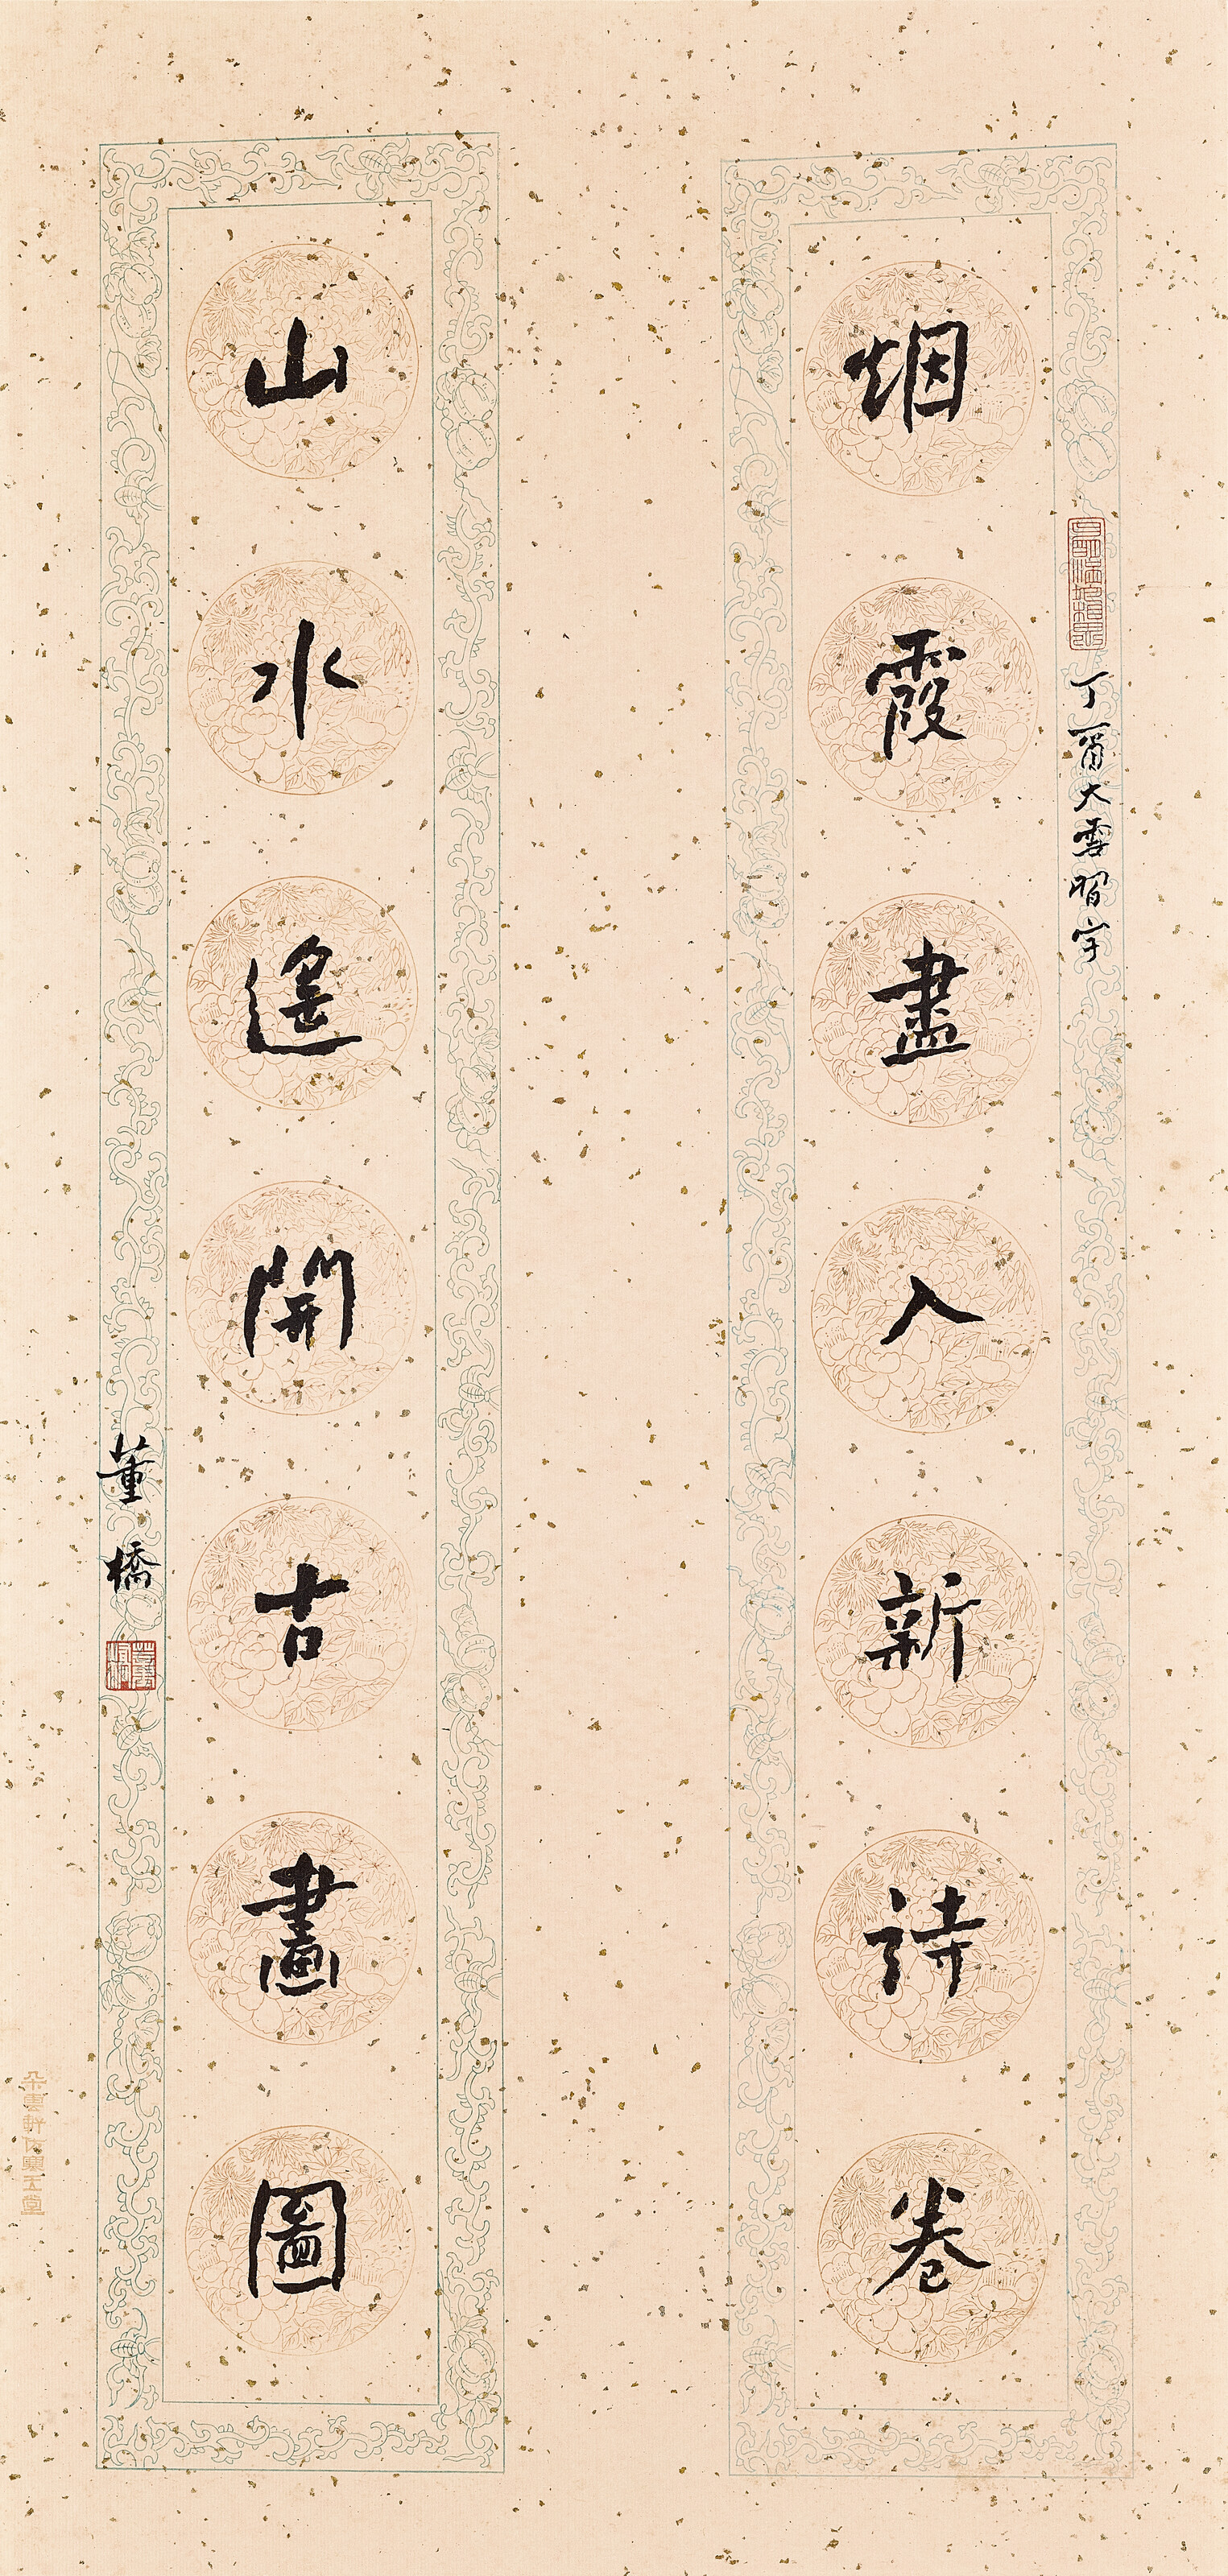 烟霞盡入新詩卷
丁酉大雪習字
山水遙開古畫圖
董橋
朵雲軒仿寶玉堂